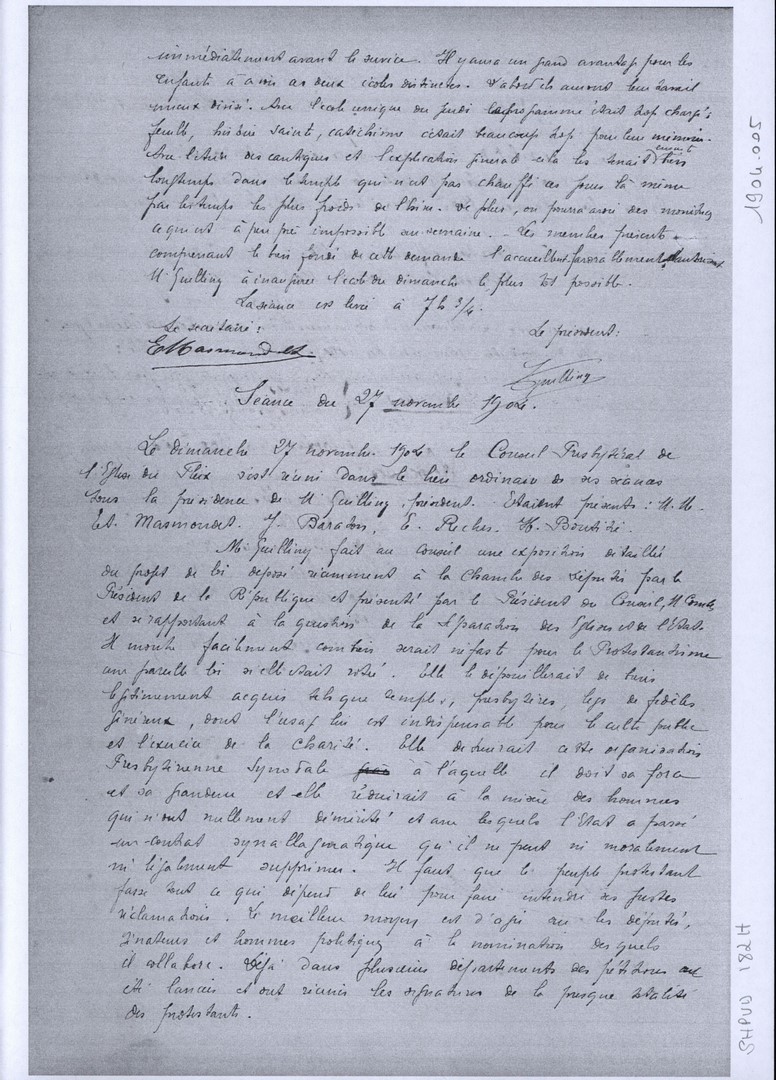 immédiatement avant le service. Il y aura un grand avantage pour les
enfants à avoir ces deux écoles distinctes. D'abord ils auront leur travail
mieux divisé. Avec l'école unique du jeudi le programme était trop chargé:
feuille, histoire sainte, catéchisme c'était beaucoup trop pour leur mémoire.
Avec l'étude des cantiques et l'explication générale cela les tenait
longtemps dans le temple qui n'est pas chauffé ces jours là même
par les temps les plus froids de l'hiver. De plus, on pourra avoir des monitrices
ce qui est à peu près impossible en semaine. Les membres présents
comprenant le bien fondé de cette demande l'accueillent favorablement
M Guilling à inaugurer l'école du dimanche le plus tôt possible.
La séance est levée à 7h 3/4.
Le secrétaire: Le président:
Et Masmondet. Guilling
Séance du 27 novembre 1904.
Le dimanche 27 novembre 1904 le Conseil Presbytéral de
l'Eglise du Fleix s'est réuni dans le lieu ordinaire de ses séances
sous la présidence de M Guilling, président. Etaient présents: M.M.
Et. Masmondet. J. Baraton, E. Reches. H. Boutiné.
M. Guilling fait au Conseil une exposition détaillée
du projet de loi déposé récemment à la Chambre des Députés par le
Président de la République et présenté par le Président du Conseil, M Combes
et se rapportant à la question de la Séparation des Eglises et de l'Etat.
Il montre facilement combien serait néfaste pour le Protestantisme
une pareille loi si elle était votée. Elle le dépouillerait de biens
légitimement acquis tels que temples, presbytères, legs de fidèles
généreux, dont l'usage lui est indispensable pour le culte public
et l'exercice de la Charité. Elle détruirait cette organisation
Presbytérienne Synodale à l'aquelle il doit sa force
et sa grandeur et elle réduirait à la misère des hommes
qui n'ont nullement démérité et avec lesquels l'Etat a passé
un contrat synallagmatique qu'il ne peut ni moralement
ni légalement supprimer. Il faut que le peuple protestant
fasse tout ce qui dépend de lui pour faire entendre ses justes
réclamations. Le meilleur moyen est d'agir sur les députés,
sénateurs et hommes politiques à la nomination desquels
il collabore. Déjà dans plusieurs départements des pétitions ont
été lancées et ont réuni les signatures de la presque totalité
des protestants.
1904.005
SHPVD 182H